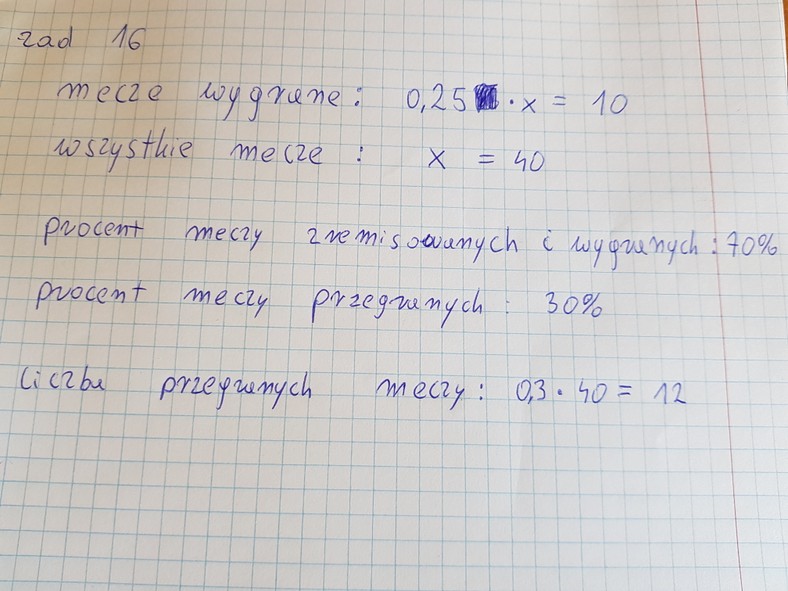 zad 16
mecze wygrane: 0,25 · x = 10
wszystkie mecze : x = 40
procent meczy zremisowanych i wygranych : 70%
procent meczy przegranych : 30%
liczba przegranych meczy : 0,3 · 40 = 12